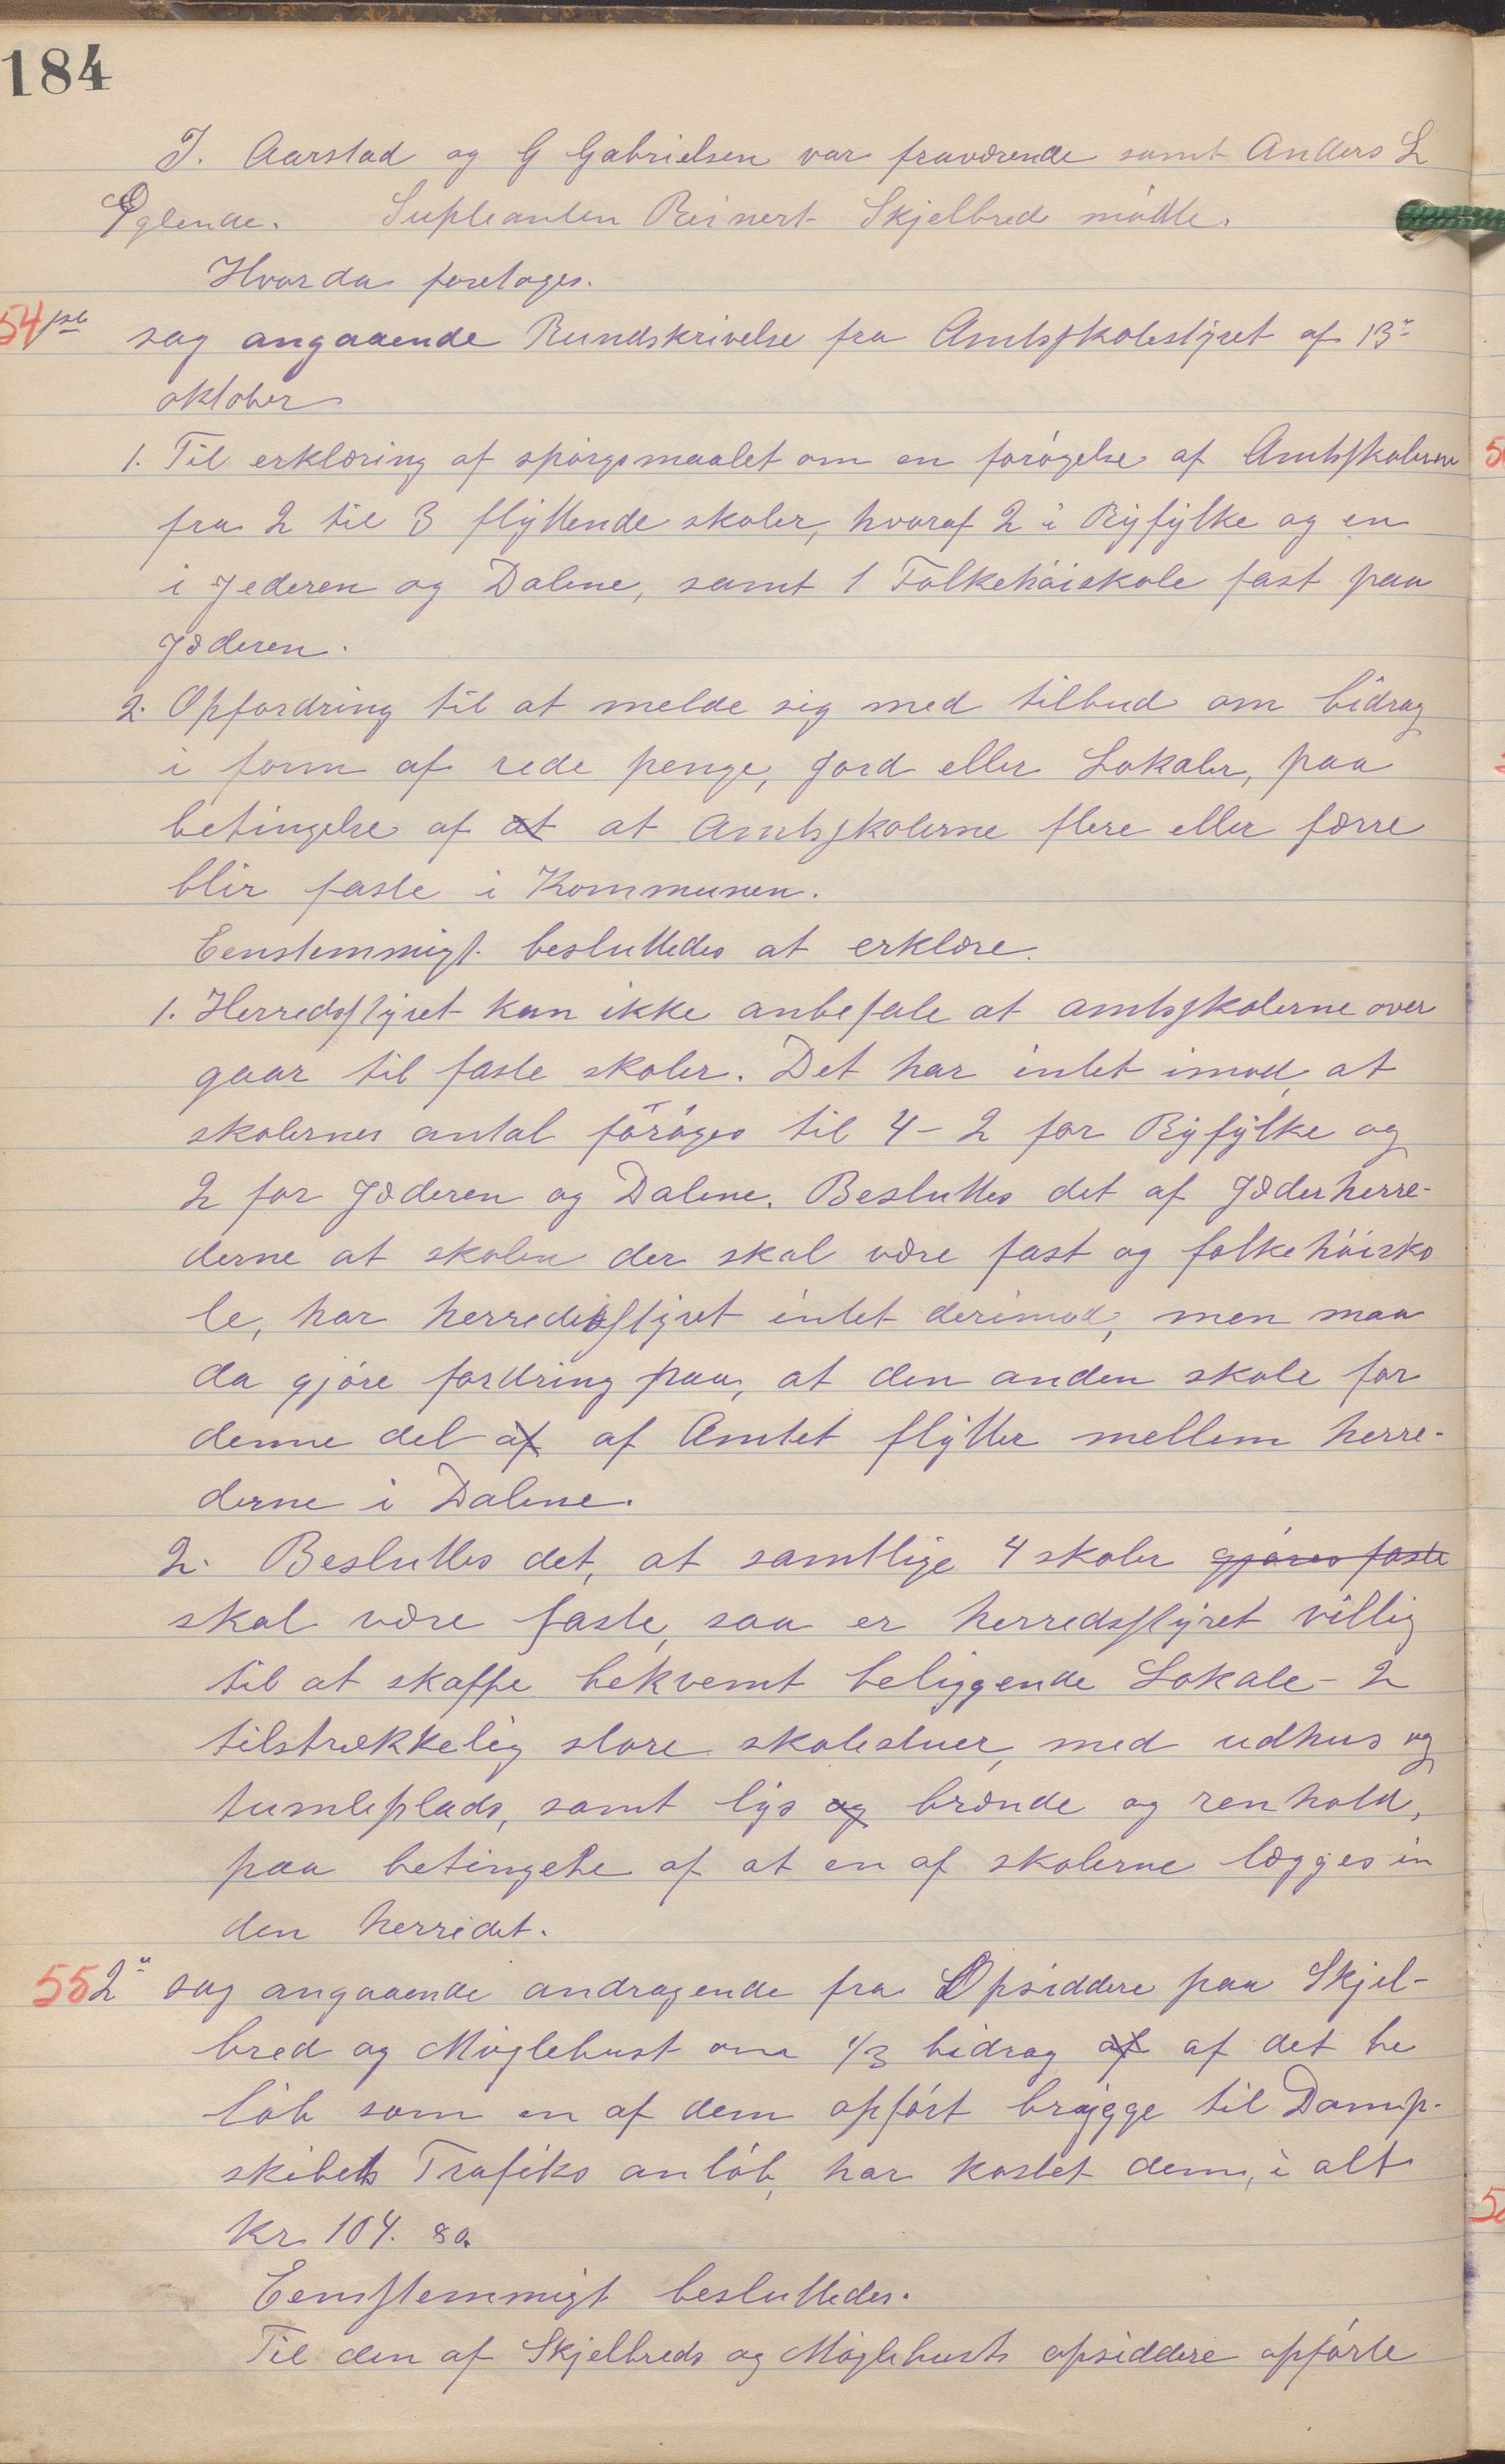 184
T. Aarstad og G Gabrielsen var fraværende samt Anders L
Eglende. Supleanten Reinert Skjelbred mödte.
Hvorda foretoges.
54 1ste sag angaaende Rundskrivelse fra Amtsskolestyret af 13de
oktober
1. Til erklæring af spörgsmaalet om en forögelse af Amtsskolerne
fra 2 til 3 flyttende skoler, hvoraf 2 i Ryfylke og en
i Jederen og Dalene, samt 1 Folkehöiskole fast paa
Jæderen.
2. Opfordring til at melde sig med tilbud om bidrag
i form af rede penge, Jord eller Lokaler, paa
betingelse af at at Amtsskolerne flere eller færre
blir faste i Kommunen.
Eenstemmigt besluttedes at erklære.
1. Herredsstyret kan ikke anbefale at amtsskolerne over
gaar til faste skoler. Det har intet imod, at
skolernes antal foröges til 4 - 2 for Ryfylke og
2 for Jæderen og Dalene. Besluttes det af Jæderherre-
derne at skolen der skal være fast og folkehöisko
le, har herredsstyret intet derimod, men maa
da gjöre fordring paa, at den anden skole for
denne del af af Amtet flytter mellem herre-
derne i Dalene.
2. Besluttes det, at samtlige 4 skoler gjöres faste
skal være faste, saa er herredsstyret villig
til at skaffe bekvemt beliggende Lokale - 2
tilstrækkelig store skolestuer, med udhus og
tumleplads, samt lys og brænde og renhold,
paa betingelse af at en af skolerne lægges in
den herredet.
55 2n sag angaaende andragende fra Opsiddere paa Skjel-
bred og Möglehust om 1/3 bidrag af af det be
löb som en af dem opfört brygge til Damp-
skibets Trafiks anlöb, har kostet dem, i alt
Kr 104. 80.
Eenstemmigt besluttedes.
Til den af Skjelbreds og Möglehusts opsiddere opförte